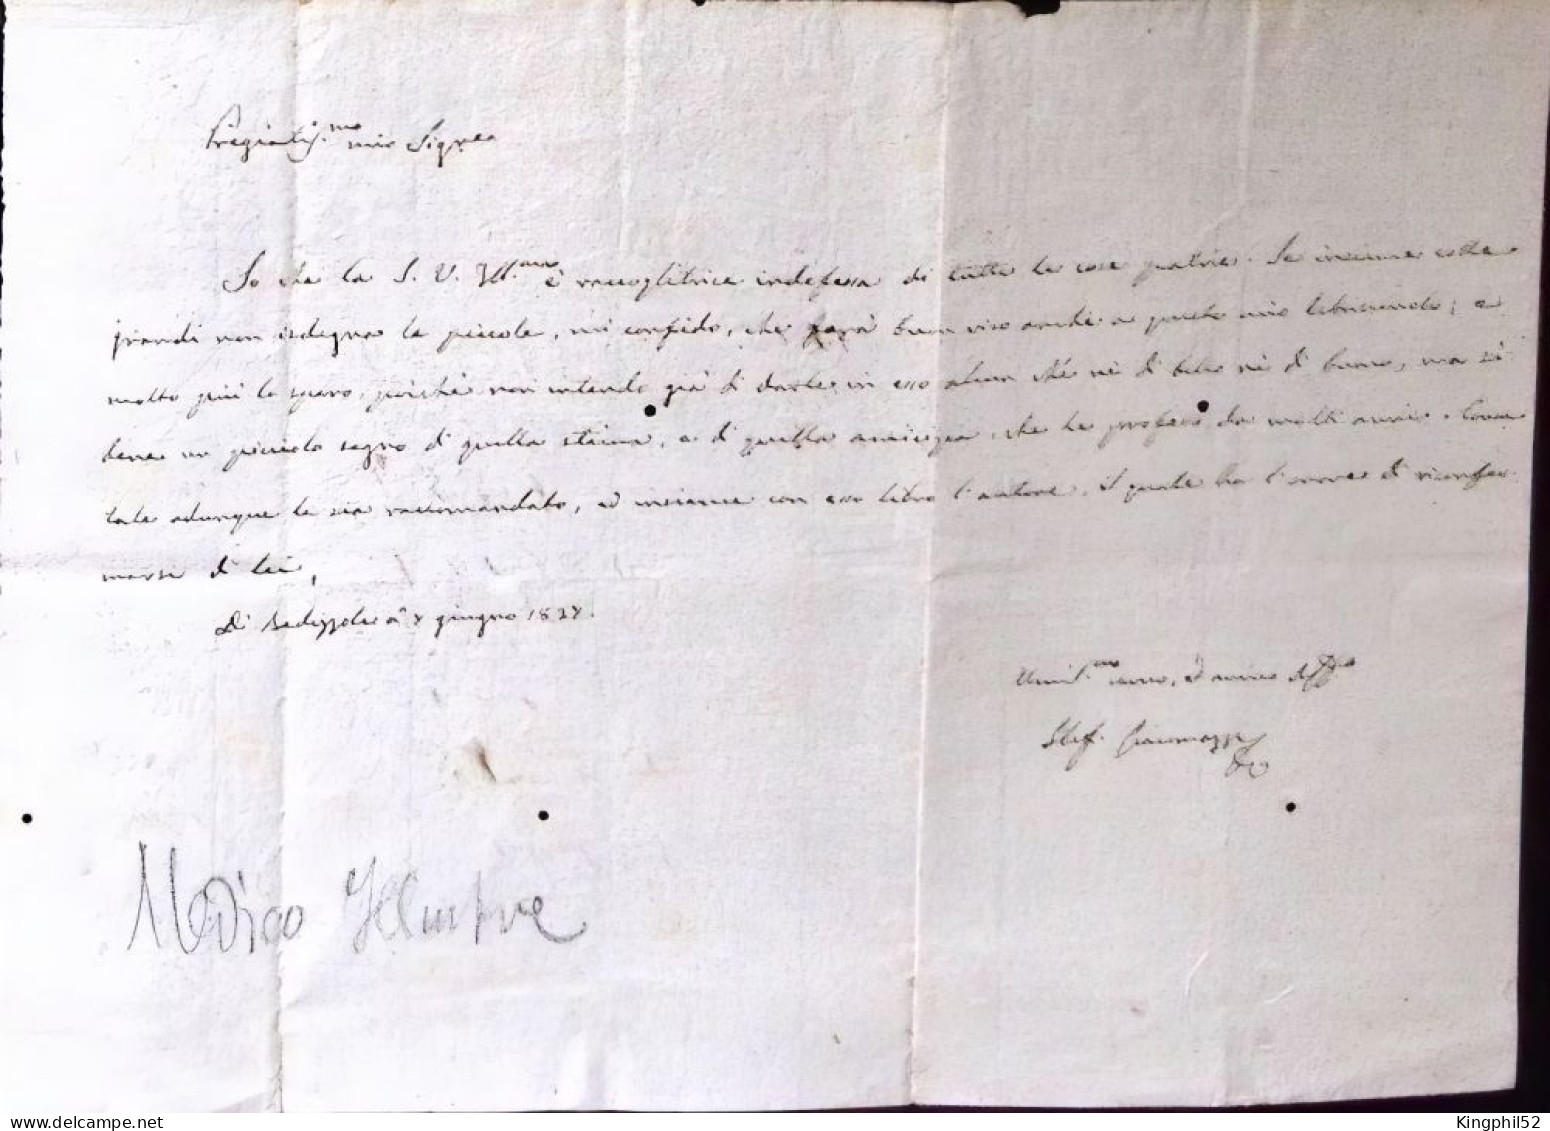 Pregiatis.mo mio Signore
So che la S. V. Ill.ma è raccoglitrice indefessa di tutte le cose patrie. Se insieme colle
grandi non isdegna le piccole, mi confido, che farà buon viso anche a questo mio libriciuolo; e
molto più lo spero, poichè non intendo già di darle in esso alcun chè nè di bello nè di buono, ma sì
bene un piccolo segno di quella stima, e di quella amicizia, che le professo da molti anni.
tale adunque le sia raccomandato, ed insieme con esso libro l'autore, il quale ha l'onore di raffer
marsi di Lei,
Di Bedizzole a' giugno 1827.
Umil.mo servo, ed amico Aff.mo
Stef. Giacomazzi
Medico Illustre
Kingphil52